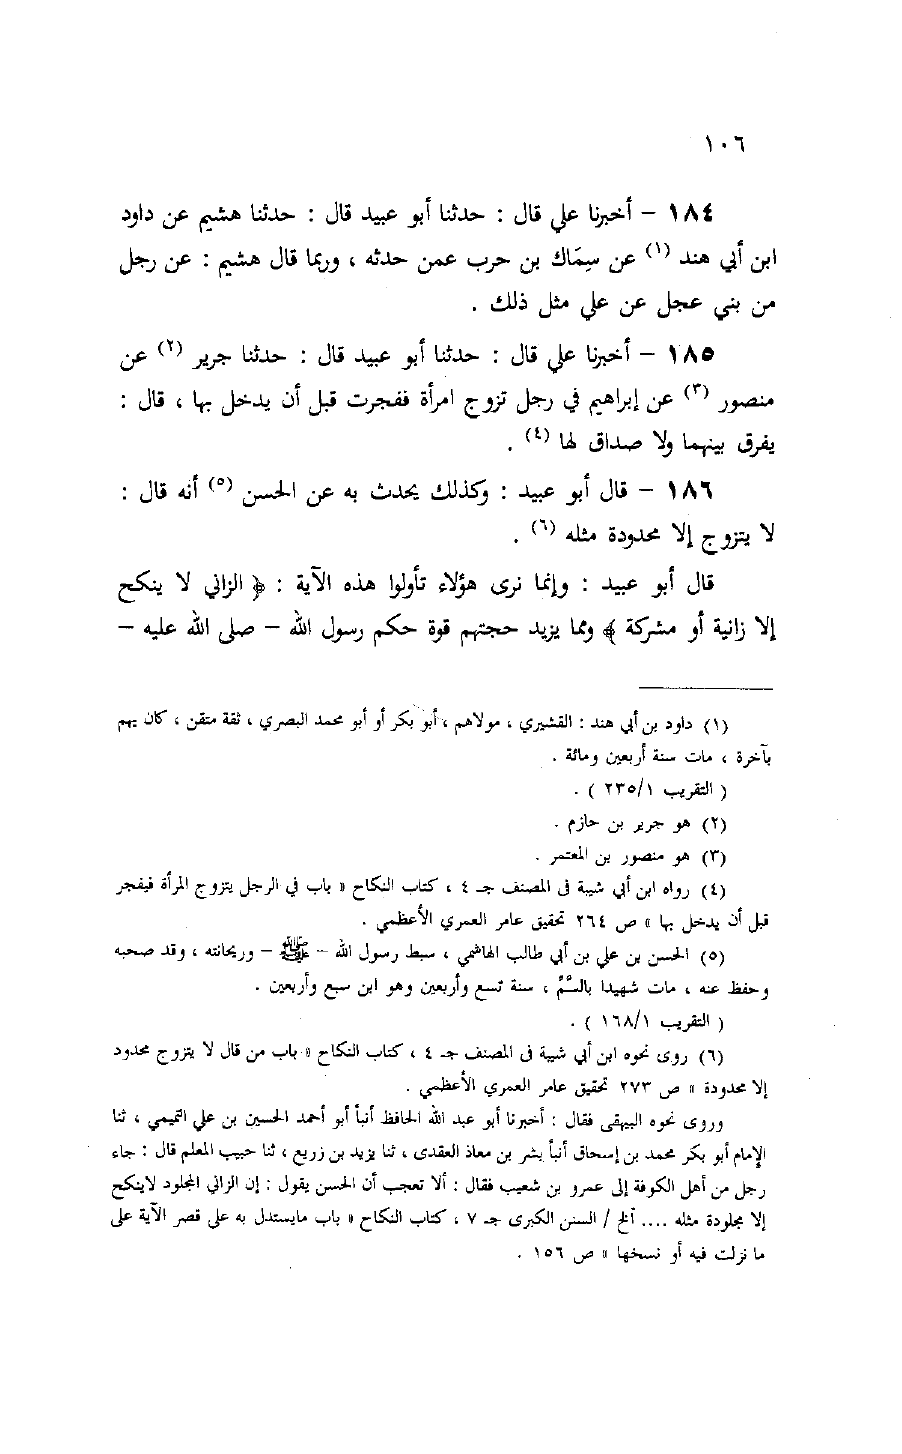 ١٠٦
١٨٤ – أخبرنا علي قال : حدثنا أبو عبيد قال : حدثنا هشيم عن داود
ابن أبي هند (١) عن سِمَاك بن حرب عمن حدثه ، وربما قال هشيم : عن رجل
من بني عجل عن علي مثل ذلك .
١٨٥ – أخبرنا علي قال : حدثنا أبو عبيد قال : حدثنا جرير (٢) عن
منصور (٣) عن إبراهيم في رجل تزوج امرأة ففجرت قبل أن يدخل بها ، قال :
يفرق بينهما ولا صداق لها (٤) .
١٨٦ – قال أبو عبيد : وكذلك يحدث به عن الحسن (٥) أنه قال :
لا يتزوج إلا محدودة مثله (٦) .
قال أبو عبيد : وإنما نرى هؤلاء تأولوا هذه الآية : ﴿ الزاني لا ينكح
إلا زانية أو مشركة ﴾ ومما يزيد حجتهم قوة حكم رسول الله – صلى الله عليه –
(١) داود بن أبي هند : القشيري ، مولاهم ، أبو بكر أو أبو محمد البصري ، ثقة متقن ، كان يهم
بآخرة ، مات سنة أربعين ومائة .
( التقريب ٢٣٥/١ ) .
(٢) هو جرير بن حازم .
(٣) هو منصور بن المعتمر .
(٤) رواه ابن أبي شيبة فى المصنف جـ ٤ ، كتاب النكاح « باب في الرجل يتزوج المرأة فيفجر
قبل أن يدخل بها » ص ٢٦٤ تحقيق عامر العمري الأعظمي .
(٥) الحسن بن علي بن أبي طالب الهاشمي ، سبط رسول الله – ﷺ – وريحانته ، وقد صحبه
وحفظ عنه ، مات شهيدا بالسَّمِّ ، سنة تسع وأربعين وهو ابن سبع وأربعين .
( التقريب ١٦٨/١ ) .
(٦) روى نحوه ابن أبي شيبة فى المصنف جـ ٤ ، كتاب النكاح « باب من قال لا يتزوج محدود
إلا محدودة » ص ٢٧٣ تحقيق عامر العمري الأعظمي .
وروى نحوه البيهقى فقال : أخبرنا أبو عبد الله الحافظ أنبأ أبو أحمد الحسين بن علي التميمي ، ثنا
الإمام أبو بكر محمد بن إسحاق أنبأ بشر بن معاذ العقدى ، ثنا يزيد بن زريع ، ثنا حبيب المعلم قال : جاء
رجل من أهل الكوفة إلى عمرو بن شعيب فقال : ألا تعجب أن الحسن يقول : إن الزاني المجلود لاينكح
إلا مجلودة مثله .... آلخ / السنن الكبرى جـ ٧ ، كتاب النكاح « باب مايستدل به على قصر الآية على
ما نزلت فيه أو نسخها » ص ١٥٦ .